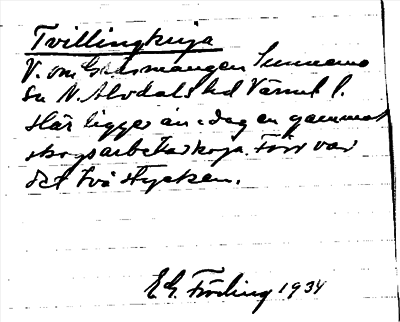 Tvillingkuja
V. om Gräsmangen Sunnemo
sn N. Älvdals hd Värml l.
Här ligger än i dag en gammal
skogsarbetarkoja. Förr var
det två stycken.
E G. Fröding 1934